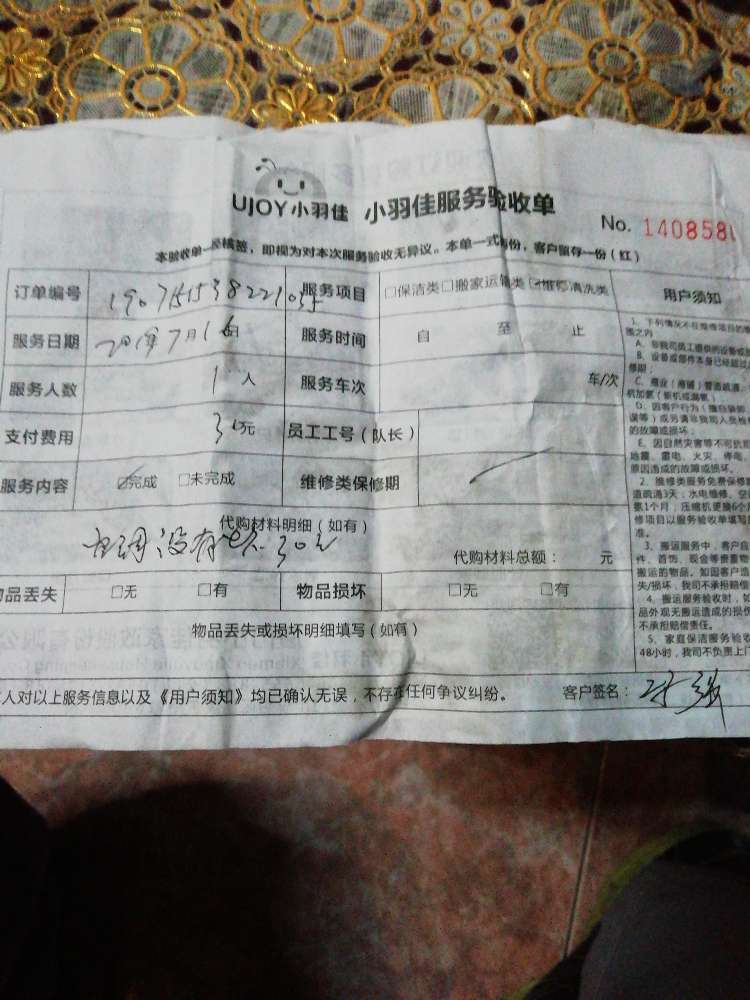 UJOY小羽佳 小羽佳服务验收单
No. 1408580
本验收单一经核签，即视为对本次服务验收无异议。本单一式两份，客户留存一份（红）
订单编号 服务项目 □保洁类□搬家运输类☑维修清洗类 用户须知
服务日期 2019年7月16日 服务时间 自 至 止
服务人数 1人 服务车次 车/次
支付费用 30元 员工工号（队长）
服务内容 ☑完成 □未完成 维修类保修期
代购材料明细（如有）
空调没有 30元
代购材料总额： 元
物品丢失 □无 □有 物品损坏 □无 □有
物品丢失或损坏明细填写（如有）
人对以上服务信息以及《用户须知》均已确认无误，不存在任何争议纠纷。 客户签名：
1、下列情况不在维修项目的
围之内
A、非我司员工提供的设备或
B、设备或部件本身已经超过
修期；
机加氟（新机或漏氟）
误等）或另请非我司人员检修
的故障或损坏；
E、因自然灾害等不可抗
地震、雷电、火灾、停电
原因造成的故障或损坏。
2、维修类服务免费保修
道疏通3天；水电维修、空
氟1个月；压缩机更换6个月
修项目以服务验收单填写
准。
3、搬运服务中，客户自
件、首饰、现金等贵重物
搬运的物品。如因客户造
失/损坏，我司不承担赔偿
4、搬运服务验收时，如
品外观无搬运造成的损伤
不承担赔偿责任。
5、家庭保洁服务验收
48小时，我司不负责上门